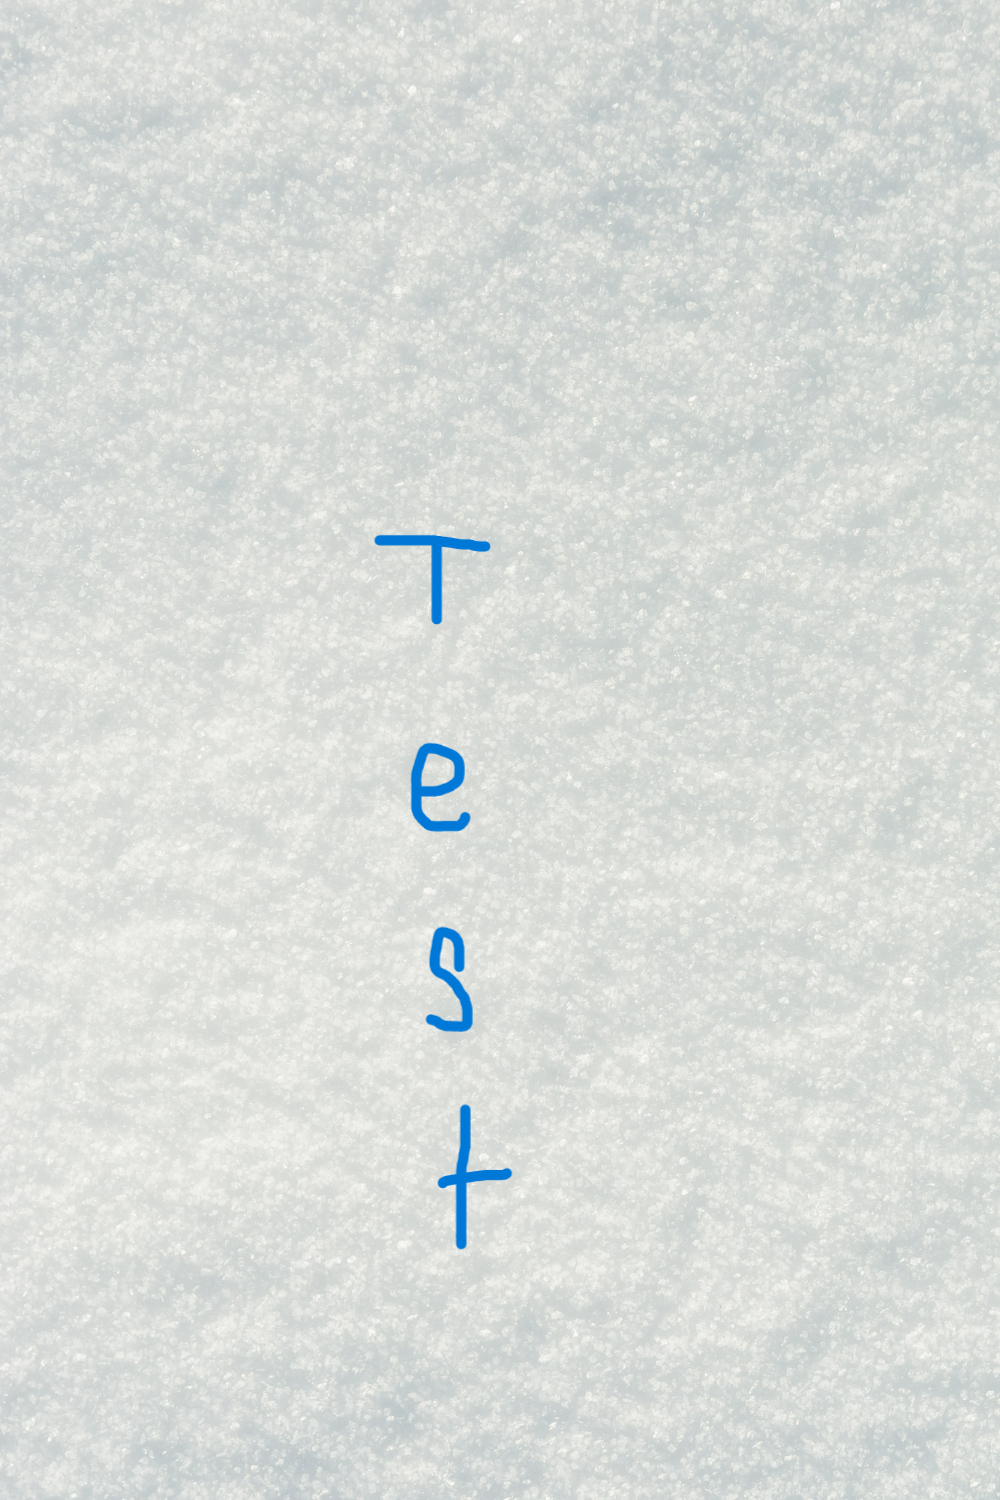 T
e
s
t